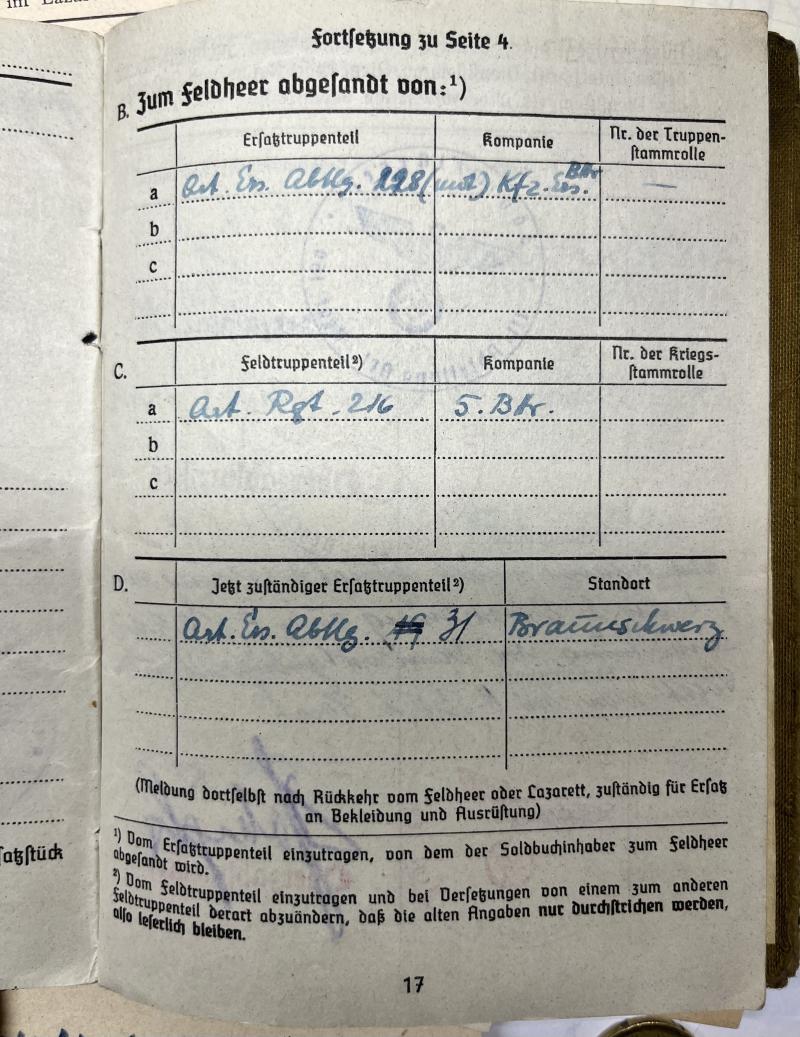 Fortsetzung zu Seite 4.
B. Zum Feldheer abgesandt von:¹)
Ersatztruppenteil Kompanie Nr. der Truppen-
stammrolle
a Art. Ers. Abtlg. (mot) Kfz. Ers. Bttr —
b
c
C. Feldtruppenteil²) Kompanie Nr. der Kriegs-
stammrolle
a Art. Rgt. 216 5. Bttr.
b
c
D. Jetzt zuständiger Ersatztruppenteil²) Standort
Art. Ers. Abtlg. 31 Braunschweig
(Meldung dortselbst nach Rückkehr vom Feldheer oder Lazarett, zuständig für Ersatz
an Bekleidung und Ausrüstung)
¹) Vom Ersatztruppenteil einzutragen, von dem der Soldbuchinhaber zum Feldheer
abgesandt wird.
²) Vom Feldtruppenteil einzutragen und bei Versetzungen von einem zum anderen
Feldtruppenteil derart abzuändern, daß die alten Angaben nur durchstrichen werden,
also leserlich bleiben.
17
satzstück